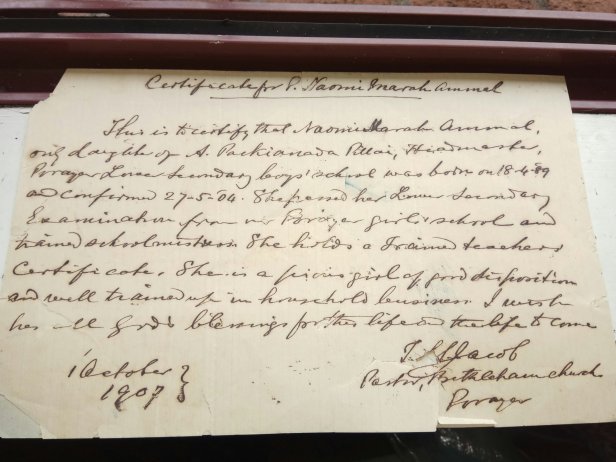 Certificate for P. Naomi Marah Ammal
This is to certify that Naomi Marah Ammal,
only daughter of A. Packianada Pillai, Headmaster,
Porayer Lower Secondary boys' school was born on 18-4-89
and confirmed 27-5-04. She passed her Lower Secondary
Examination from our Porayer girls' school and
trained school mistress. She holds a Trained teachers
Certificate. She is a pious girl of good disposition
and well trained up in household business I wish
her all God's blessings for this life and the life to come
T. Jacob
Pastor, Bethleham church
Porayer
1 October
1907